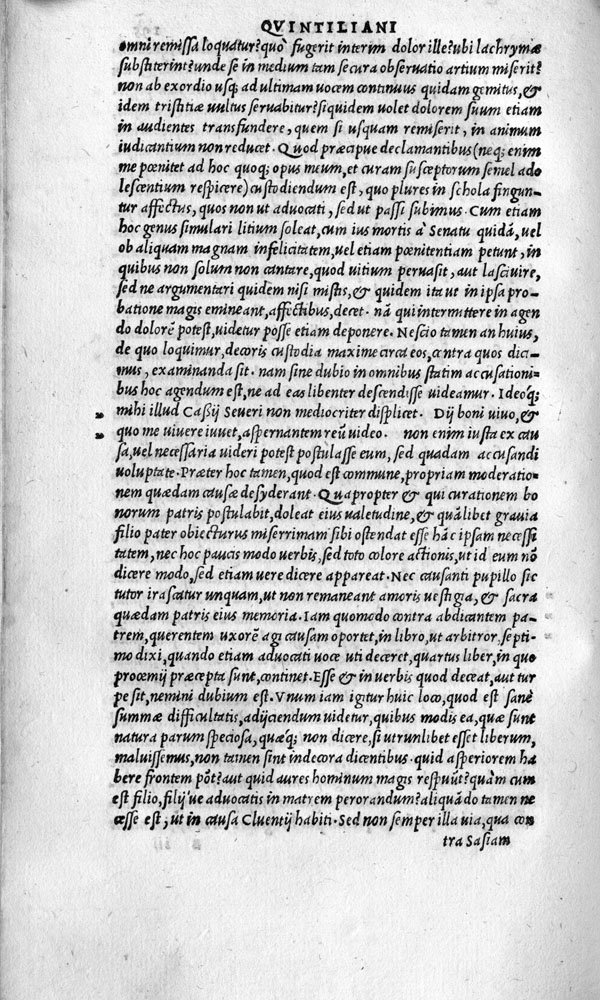 QVINTILIANI
omni remissa loquatur? quò fugerit interim dolor ille? ubi lachrymæ
substiterint? unde se in medium tam secura observatio artium miserit?
non ab exordio usq; ad ultimam vocem continuus quidam gemitus, &
idem tristitiæ vultus servabitur? siquidem volet dolorem suum etiam
in audientes transfundere, quem si usquam remiserit, in animum
iudicantium non reducet. Quod præcipue declamantibus (neq; enim
me pœnitet ad hoc quoq; opus meum, et curam susceptorum semel ado
lescentium respicere) custodiendum est, quo plures in schola fingun-
tur affectus, quos non ut advocati, sed ut passi subimus. Cum etiam
hoc genus simulari litium soleat, cum ius mortis à Senatu quidā, vel
ob aliquam magnam infelicitatem, vel etiam pœnitentiam petunt, in
quibus non solum non cantare, quod vitium pervasit, aut lascivire,
sed ne argumentari quidem nisi mistis, & quidem ita ut in ipsa pro-
batione magis emineant, affectibus, decet. nā qui intermittere in agen
do dolorē potest, videtur posse etiam deponere. Nescio tamen an huius,
de quo loquimur, decoris custodia maxime circa eos, contra quos dici-
mus, examinanda sit. nam sine dubio in omnibus statim accusationi-
bus hoc agendum est, ne ad eas libenter descendisse videamur. Ideoq;
„ mihi illud Caßij Severi non mediocriter displicet. Dij boni vivo, &
„ quo me vivere iuvet, aspernantem reū video. non enim iusta ex cau
sa, vel necessaria videri potest postulasse eum, sed quadam accusandi
voluptate. Præter hoc tamen, quod est commune, propriam moderatio-
nem quædam causæ desyderant. Quapropter & qui curationem bo
norum patris postulabit, doleat eius valetudine, & quālibet gravia
filio pater obiecturus miserrimam sibi ostendat esse hāc ipsam necessi
tatem, nec hoc paucis modo verbis, sed toto colore actionis, ut id eum nō
dicere modo, sed etiam vere dicere appareat. Nec causanti pupillo sic
tutor irascatur unquam, ut non remaneant amoris vestigia, & sacra
quædam patris eius memoria. Iam quomodo contra abdicantem pa-
trem, querentem uxorē agi causam oportet, in libro, ut arbitror, septi-
mo dixi, quando etiam advocati voce uti deceret, quartus liber, in quo
prooemij præcepta sunt, continet. Esse & in verbis quod deceat, aut tur
pe sit, nemini dubium est. Vnum iam igitur huic loco, quod est sanè
summæ difficultatis, adijciendum videtur, quibus modis ea, quæ sunt
natura parum speciosa, quæq; non dicere, si utrunlibet esset liberum,
maluissemus, non tamen sint indecora dicentibus. quid asperiorem ha
bere frontem pōt? aut quid aures hominum magis respuūt? quàm cum
est filio, filij've advocatis in matrem perorandum? aliquādo tamen ne
cesse est, ut in causa Cluentij habiti. Sed non semper illa via, qua con
tra Sasiam